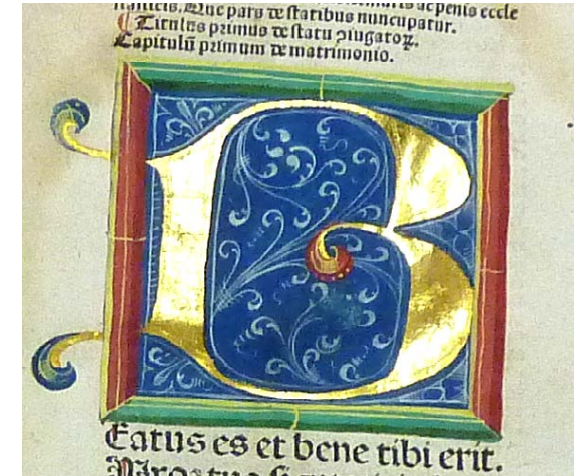 ac penis eccle
Que pars de statibus nuncupatur.
¶ Titulus primus de statu ꝯiugatoꝝ.
Capitulū primum de matrimonio.
B
Eatus es et bene tibi erit.